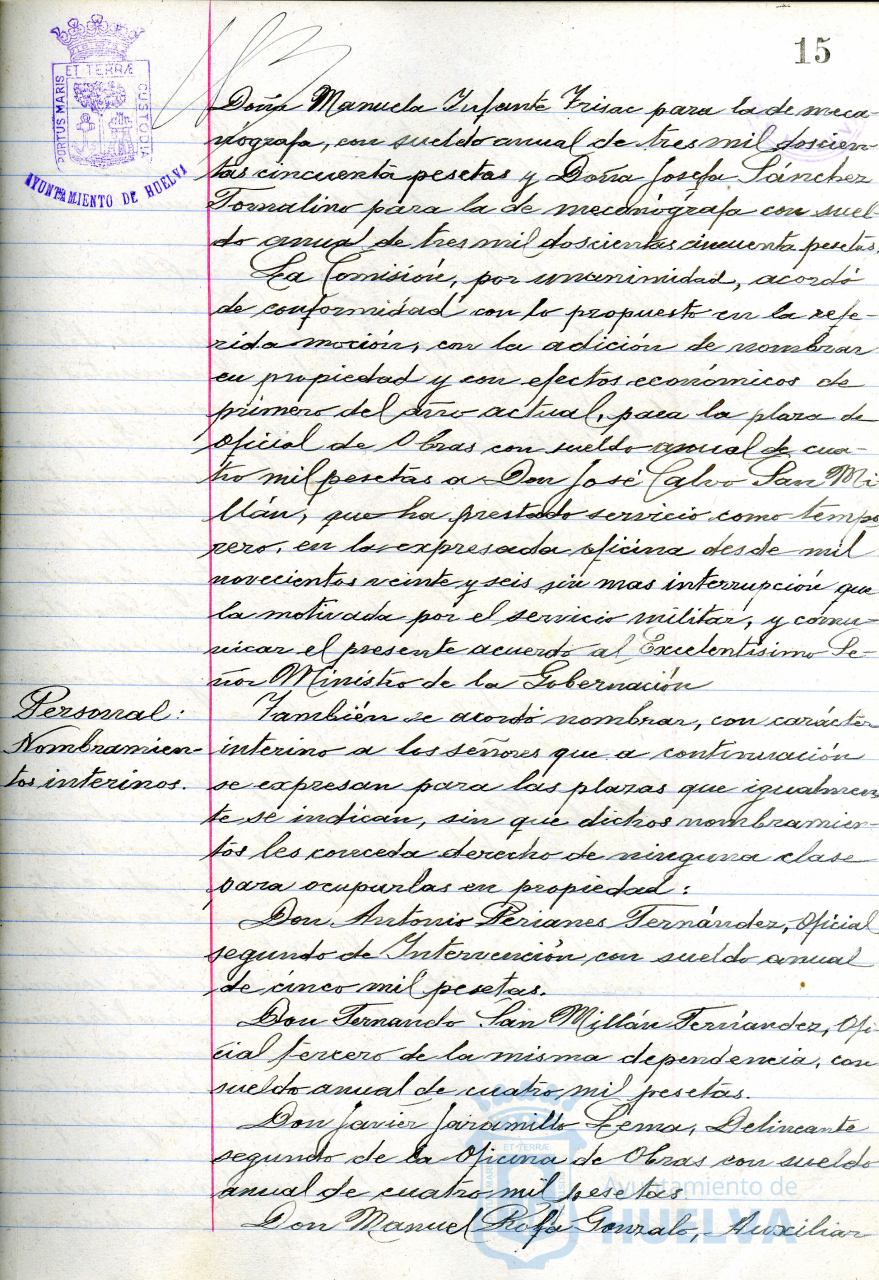 15
ET TERRÆ
PORTUS MARIS
CUSTODIA
AYUNTAMIENTO DE HUELVA
Doña Manuela Infante Frisac para la de meca-
nógrafa, con sueldo anual de tres mil doscien-
tas cincuenta pesetas y Doña Josefa Sánchez
Tornalino para la de mecanógrafa con suel-
do anual de tres mil doscientas cincuenta pesetas.
La Comisión, por unanimidad, acordó
de conformidad con lo propuesto en la refe-
rida moción, con la adición de nombrar
en propiedad y con efectos económicos de
primero del año actual, para la plaza de
Oficial de Obras con sueldo anual de cua-
tro mil pesetas a Don José Calvo San Mi-
llán, que ha prestado servicio como tempo
rero, en la expresada oficina desde mil
novecientos veinte y seis sin mas interrupción que
la motivada por el servicio militar, y comu-
nicar el presente acuerdo al Excelentísimo Se-
ñor Ministro de la Gobernación
Personal:
Nombramien-
tos interinos.
También se acordó nombrar, con carácter
interino a los señores que a continuación
se expresan para las plazas que igualmen
te se indican, sin que dichos nombramien-
tos les conceda derecho de ninguna clase
para ocuparlas en propiedad:
Don Antonio Perianes Fernández, Oficial
segundo de Intervención con sueldo anual
de cinco mil pesetas.
Don Fernando San Millán Fernández, Ofi-
cial tercero de la misma dependencia, con
sueldo anual de cuatro mil pesetas.
Don Javier Jaramillo Lema, Delineante
segundo de la Oficina de Obras con sueldo
anual de cuatro mil pesetas.
Don Manuel Rofa Gonzalo, Auxiliar
Ayuntamiento de
HUELVA